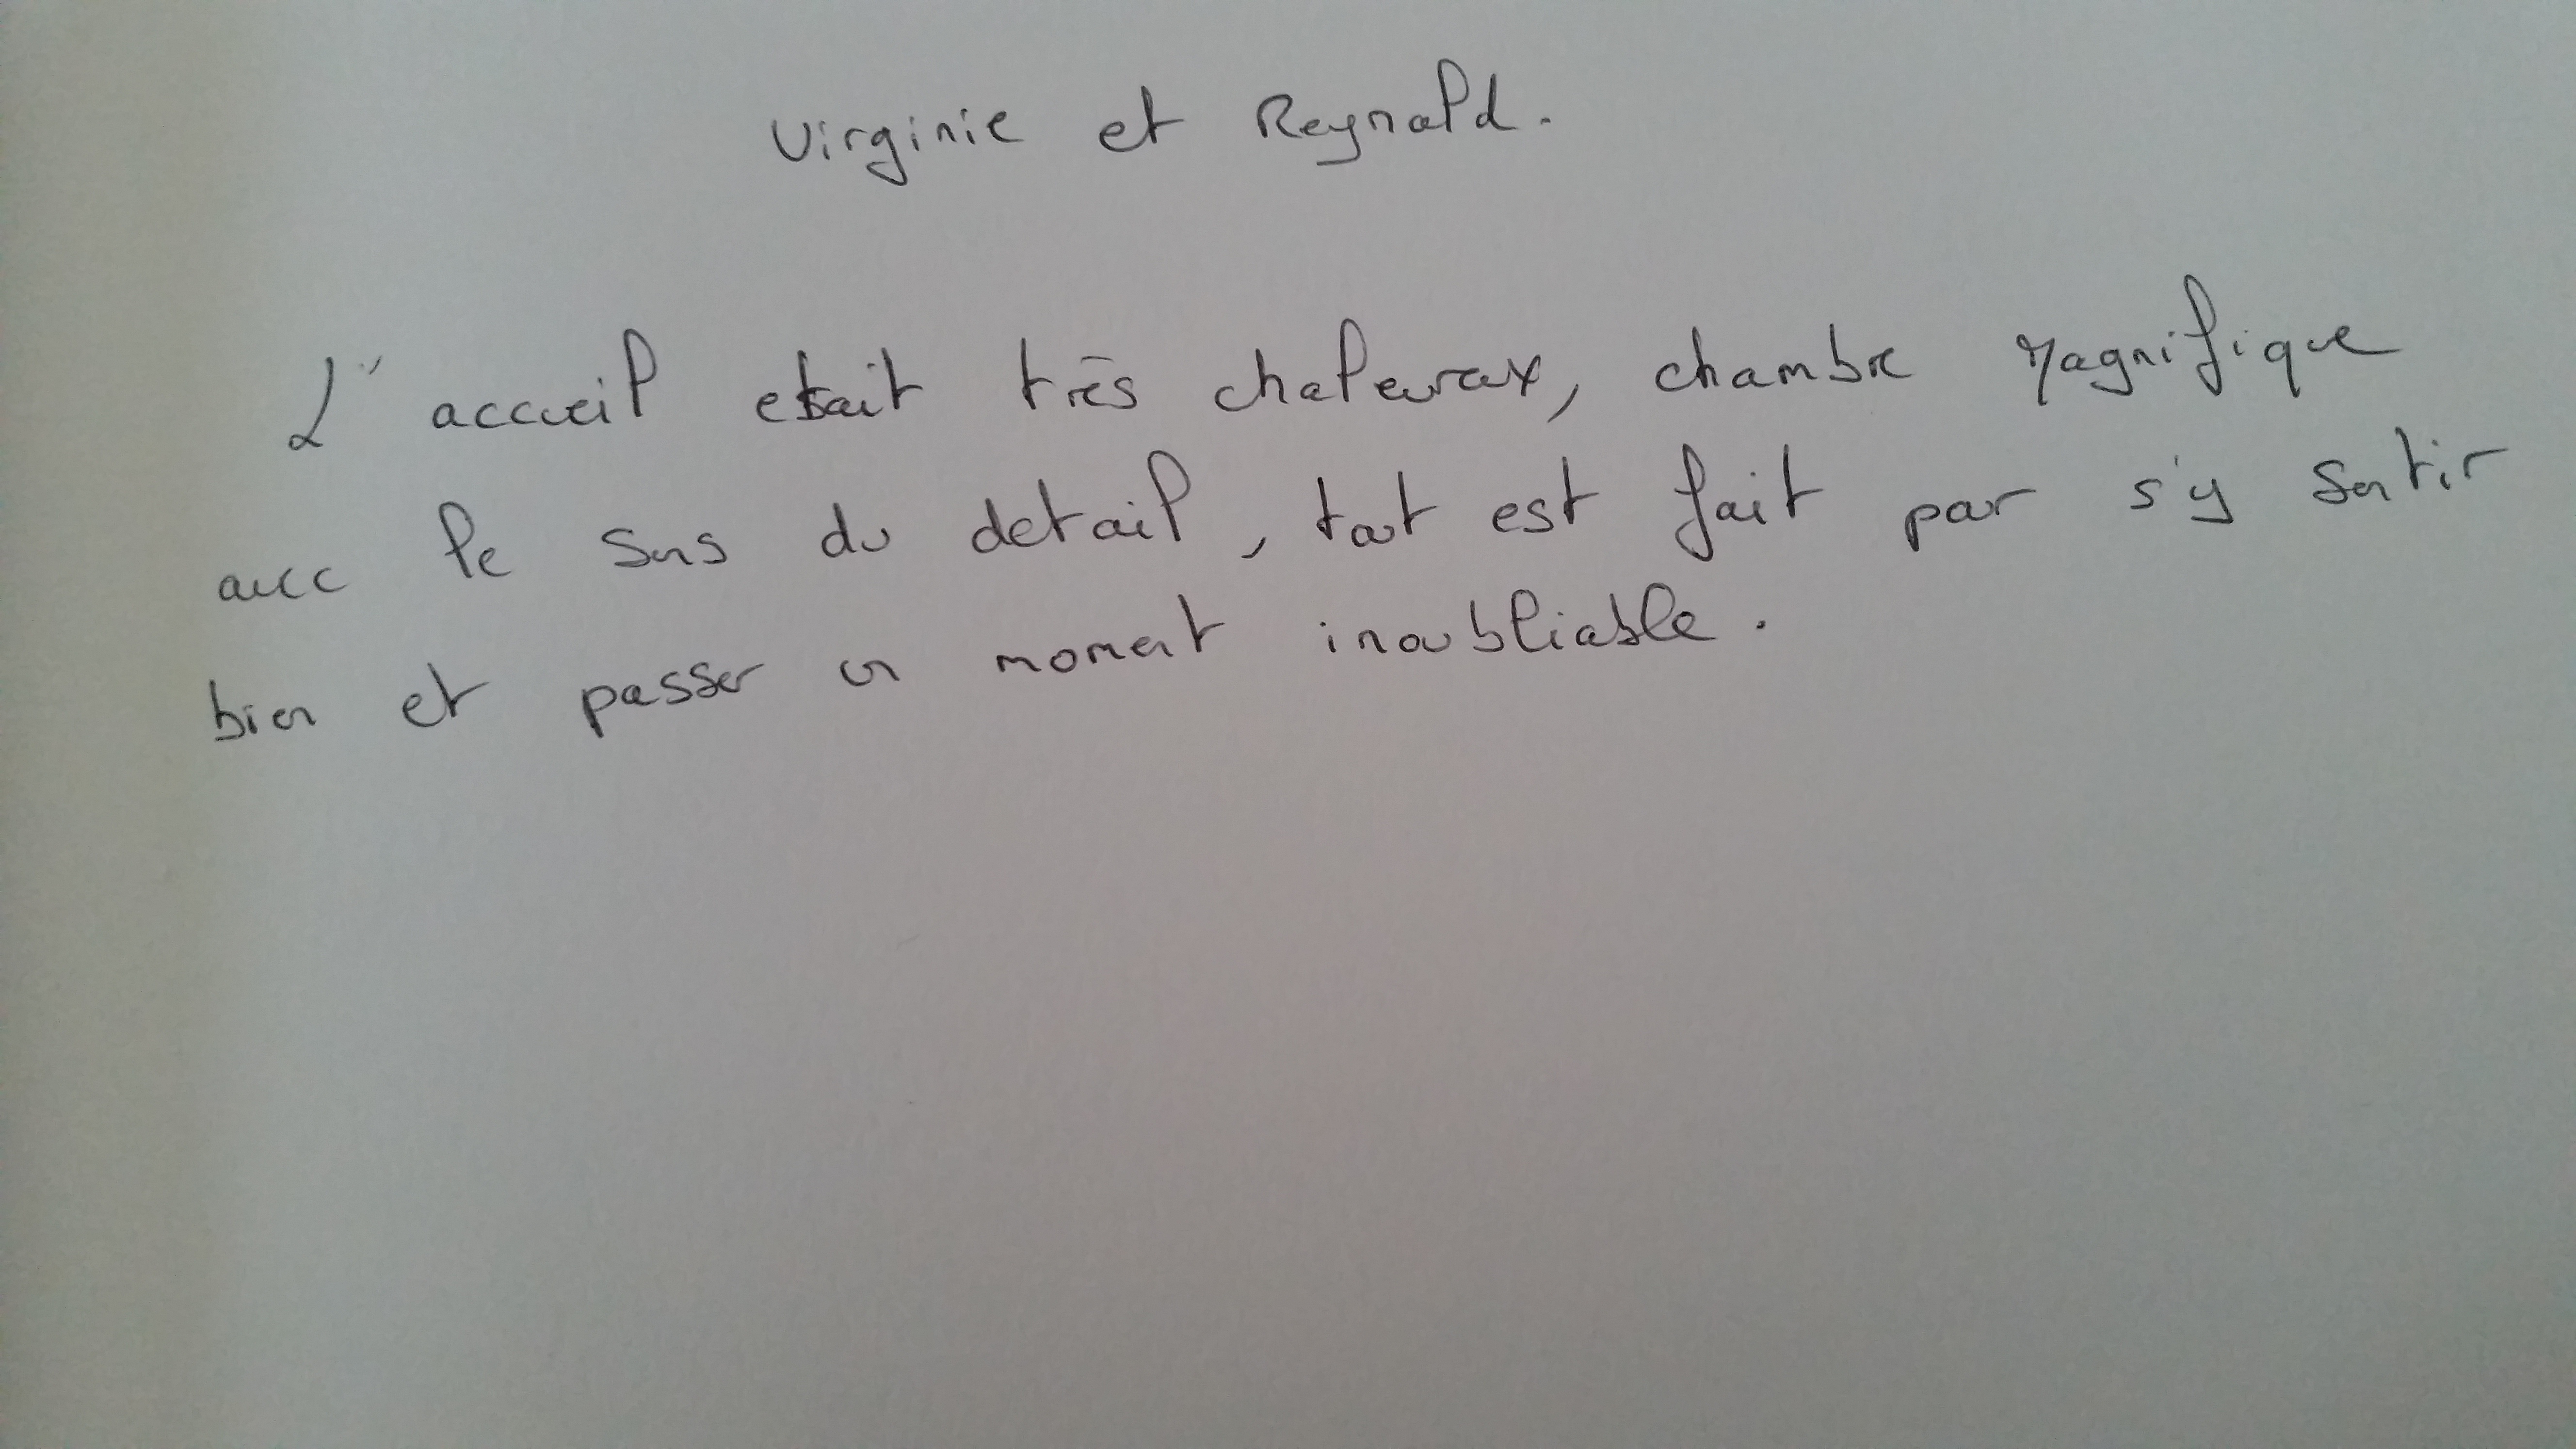 Virginie et Reynald.
L'accueil etait très chaleureux, chambre Magnifique
avec le sens du detail, tout est fait pour s'y sentir
bien et passer un moment inoubliable.